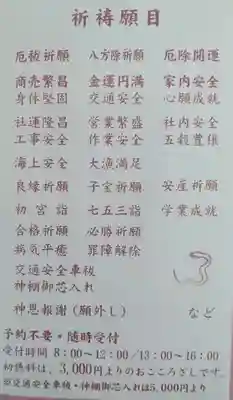 祈禱願目
厄祓祈願 八方除祈願 厄除開運
商売繁昌 金運円満 家内安全
身体堅固 交通安全 心願成就
社運隆昌 営業繁盛 社内安全
工事安全 作業安全 五穀豊穣
海上安全 大漁満足
良縁祈願 子宝祈願 安産祈願
初宮詣 七五三詣 学業成就
合格祈願 必勝祈願
病気平癒 罪障解除
交通安全車祓
神棚御芯入れ
神恩報謝(願外し) など
予約不要・随時受付
受付時間 8:00〜12:00/13:00〜16:00
初穂料は、3,000円よりのおこころざしです。
※交通安全車祓・神棚御芯入れは5,000円より